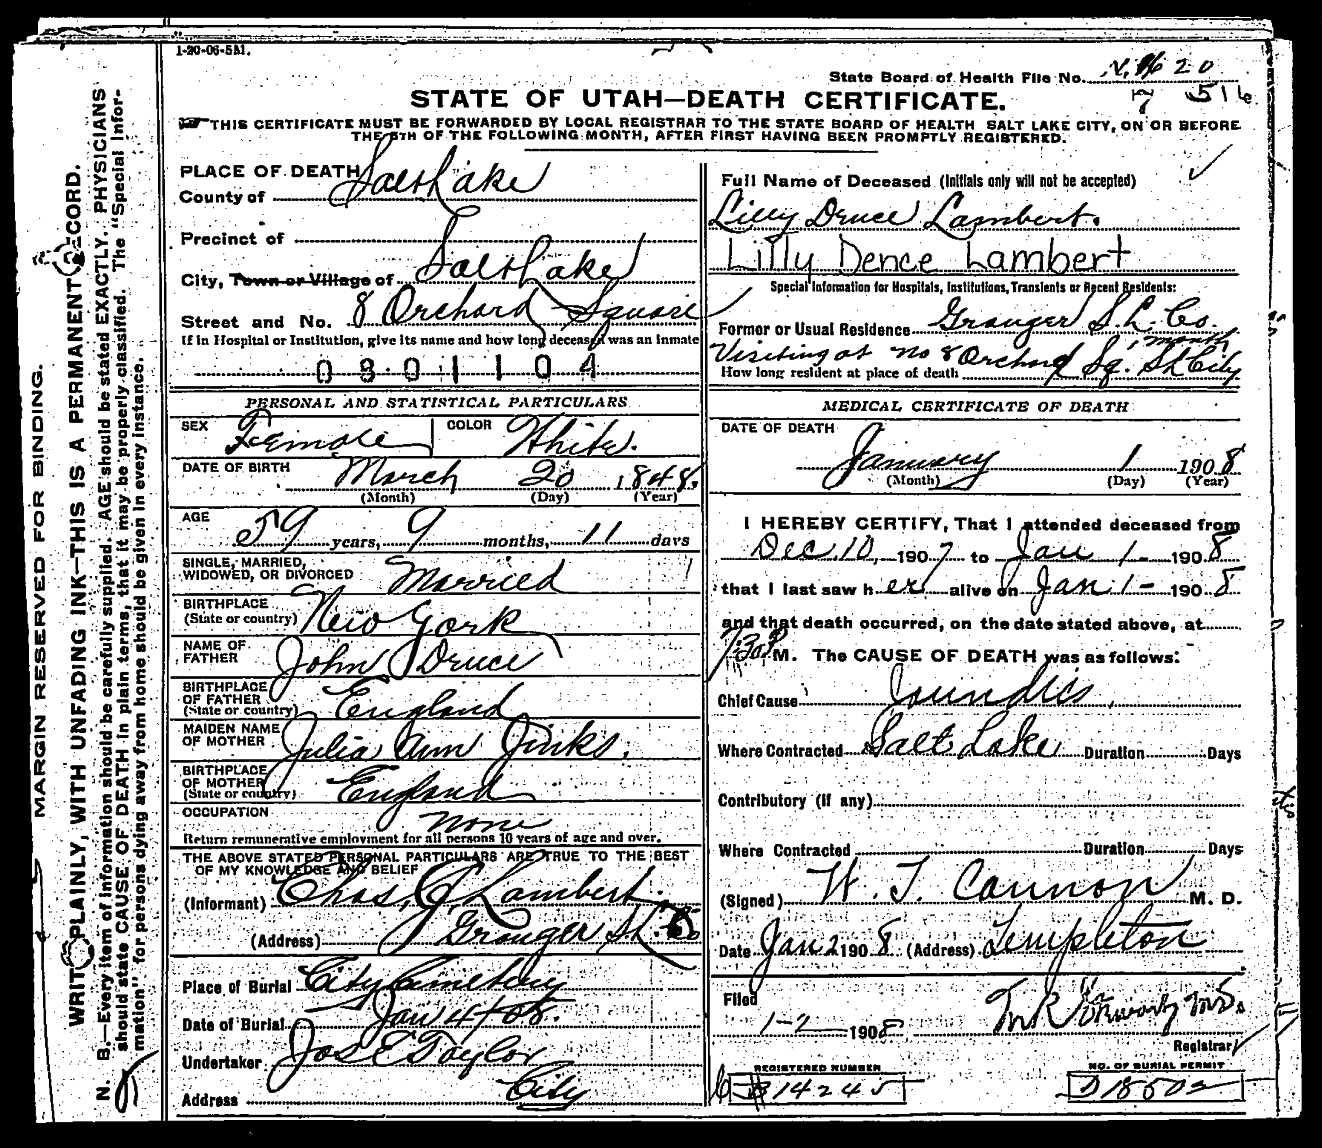 1-20-06-5M.
State Board of Health File No. 20
7 516
STATE OF UTAH—DEATH CERTIFICATE.
THIS CERTIFICATE MUST BE FORWARDED BY LOCAL REGISTRAR TO THE STATE BOARD OF HEALTH SALT LAKE CITY, ON OR BEFORE
THE 5TH OF THE FOLLOWING MONTH, AFTER FIRST HAVING BEEN PROMPTLY REGISTERED.
MARGIN RESERVED FOR BINDING.
WRITE PLAINLY, WITH UNFADING INK—THIS IS A PERMANENT RECORD.
N. B.—Every item of information should be carefully supplied. AGE should be stated EXACTLY. PHYSICIANS
should state CAUSE OF DEATH in plain terms, that it may be properly classified. The "Special Infor-
mation" for persons dying away from home should be given in every instance.
PLACE OF DEATH
County of Salt Lake
Precinct of
City, Town or Village of Salt Lake
Street and No. 8 Orchard Square
If in Hospital or Institution, give its name and how long deceased was an inmate
0801104
PERSONAL AND STATISTICAL PARTICULARS
SEX Female COLOR White.
DATE OF BIRTH March 20 1848.
(Month) (Day) (Year)
AGE 59 years, 9 months, 11 days
SINGLE, MARRIED,
WIDOWED, OR DIVORCED Married
BIRTHPLACE
(State or country) New York
NAME OF
FATHER John Druce
BIRTHPLACE
OF FATHER
(State or country) England
MAIDEN NAME
OF MOTHER Julia Ann Jinks.
BIRTHPLACE
OF MOTHER
(State or country) England
OCCUPATION None
Return remunerative employment for all persons 10 years of age and over.
THE ABOVE STATED PERSONAL PARTICULARS ARE TRUE TO THE BEST
OF MY KNOWLEDGE AND BELIEF
(Informant) Chas. J. Lambert.
(Address) Granger SL. Co
Place of Burial City Cemetery
Date of Burial Jan 4/08.
Undertaker Jos E Taylor
Address City
Full Name of Deceased (Initials only will not be accepted)
Lilly Druce Lambert.
Lilly Dence Lambert
Special Information for Hospitals, Institutions, Transients or Recent Residents:
Former or Usual Residence Granger S.L. Co.
1 month
Visiting at no 8 Orchard Sq. SL City
How long resident at place of death
MEDICAL CERTIFICATE OF DEATH
DATE OF DEATH
January 1 1908
(Month) (Day) (Year)
I HEREBY CERTIFY, That I attended deceased from
Dec 10, 1907 to Jan 1- 1908
that I last saw her alive on Jan 1- 1908
and that death occurred, on the date stated above, at
7:30 P M. The CAUSE OF DEATH was as follows:
Chief Cause Jaundice,
Where Contracted Salt Lake Duration Days
Contributory (if any)
Where Contracted Duration Days
(Signed) W. T. Cannon M. D.
Date Jan 2 1908 (Address) Templeton
Filed
1-2 1908
Registrar
REGISTERED NUMBER
14245
NO. OF BURIAL PERMIT
D18502